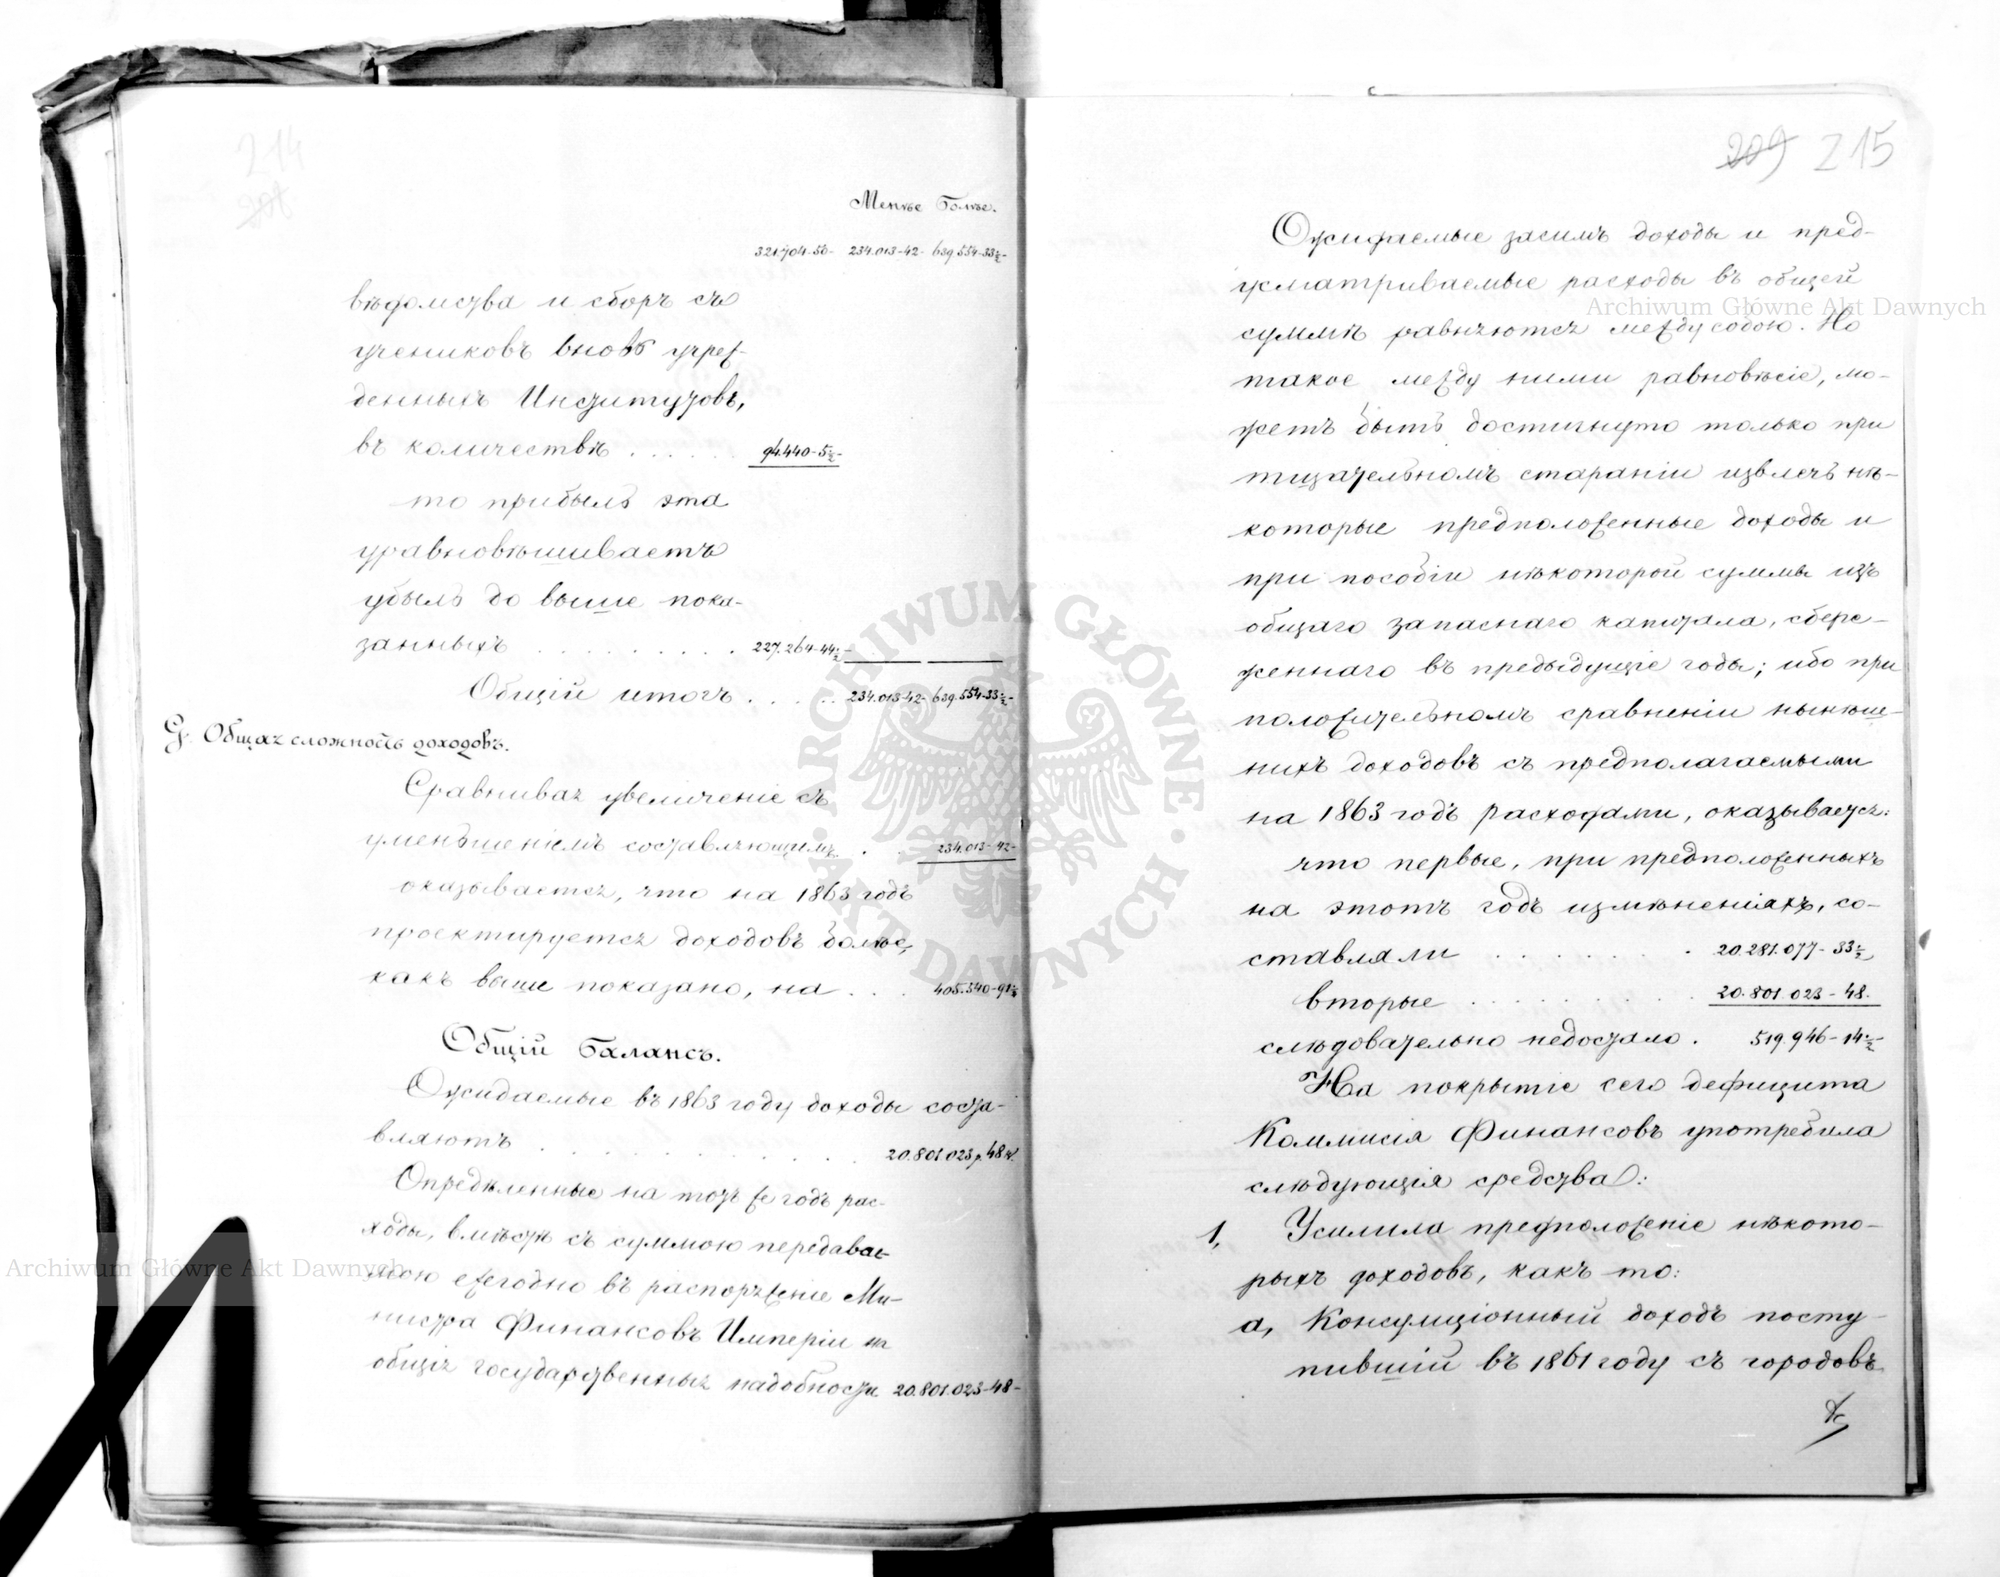 214
208
Менѣе Болѣе.
321.704-50- 234.013-42- 639.554-33½-
вѣдомства и сборъ съ
учениковъ вновь учреж-
денныхъ Институтовъ,
въ количествѣ . . . . . 94.440-5½-
то прибыль эта
уравновѣшиваетъ
убыль до выше пока-
занныхъ . . . . . . . . . 227.264-44½-
Общій итогъ . . . . . 234.013-42- 639.554-33½-
G. Общая сложность доходовъ.
Сравнивая увеличеніе съ
уменьшеніемъ составляющимъ . . 234.013-42-
оказывается, что на 1863 годъ
проектируется доходовъ болѣе,
какъ выше показано, на . . . 405.540-91½
Общій Балансъ.
Ожидаемые въ 1863 году доходы соста-
вляютъ . . . . . . . . . . 20.801.023 р. 48 к.
Опредѣленные на тотъ же годъ рас-
ходы, вмѣстѣ съ суммою передавае-
мою ежегодно въ распоряженіе Ми-
нистра Финансовъ Имперіи на
общія государственныя надобности 20.801.023-48-
209 215
Ожидаемые засимъ доходы и пред-
усматриваемые расходы въ общей
суммѣ равняются между собою. Но
такое между ними равновѣсіе, мо-
жетъ быть достигнуто только при
тщательномъ стараніи извлечь нѣ-
которые предположенные доходы и
при пособіи нѣкоторой суммы изъ
общаго запаснаго капитала, сбере-
женнаго въ предыдущіе годы; ибо при
положительномъ сравненіи нынѣш-
нихъ доходовъ съ предполагаемыми
на 1863 годъ расходами, оказывается:
что первые, при предположенныхъ
на этотъ годъ измѣненіяхъ, со-
ставляли . . . . . . . 20.281.077-33½
вторые . . . . . . . . . 20.801.023-48.
слѣдовательно недостало . 519.946-14½
На покрытіе сего дефицита
Коммисія Финансовъ употребила
слѣдующія средства:
1, Усилила предположеніе нѣкото-
рыхъ доходовъ, какъ то:
а, Консумціонный доходъ посту-
пившій въ 1861 году съ городовъ
Archiwum Główne Akt Dawnych
Archiwum Główne Akt Dawnych
ARCHIWUM GŁÓWNE · AKT DAWNYCH ·